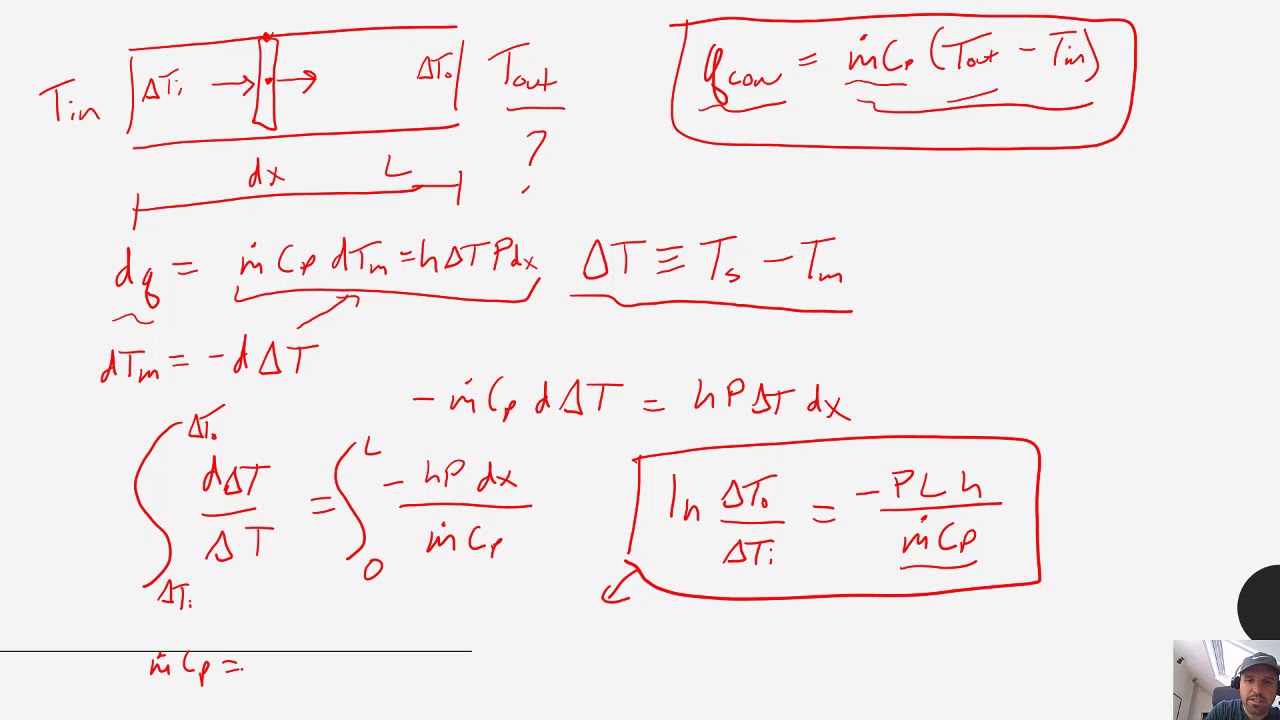 Tin ΔTi ΔTo Tout
?
dx L
qconv = ṁCp (Tout - Tin)
dq = ṁ Cp dTm = h ΔT P dx
ΔT ≡ Ts - Tm
dTm = - d ΔT
- ṁ Cp d ΔT = h P ΔT dx
∫ΔTi^ΔTo dΔT / ΔT = ∫0^L - hP dx / ṁ Cp
ln ΔTo / ΔTi = - P L h / ṁ Cp
ṁ Cp =